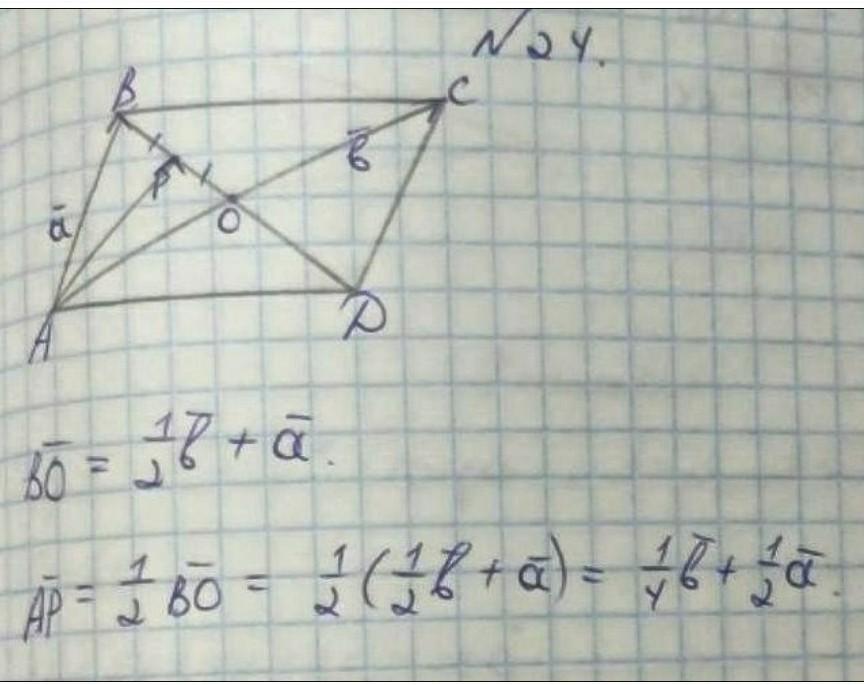 №24.
B
C
P
b̄
ā
O
A
D
B̄O̅ = 1/2 b̄ + ā.
A̅P̅ = 1/2 B̅O̅ = 1/2 (1/2 b̄ + ā) = 1/4 b̄ + 1/2 ā.